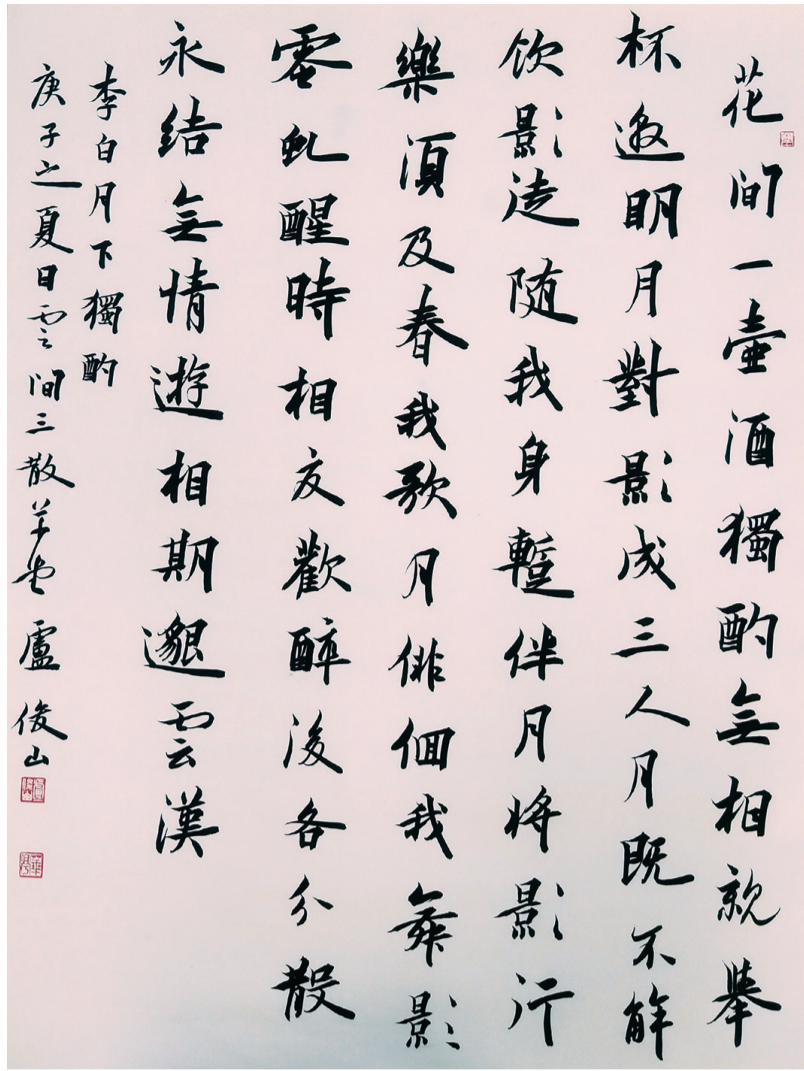 花间一壺酒獨酌無相親舉
杯邀明月對影成三人月既不解
饮影徒随我身暫伴月将影行
樂須及春我歌月徘徊我舞影
零乱醒時相交歡醉後各分散
永结無情遊相期邈雲漢
李白月下獨酌
庚子之夏日雲间三散草堂盧俊山